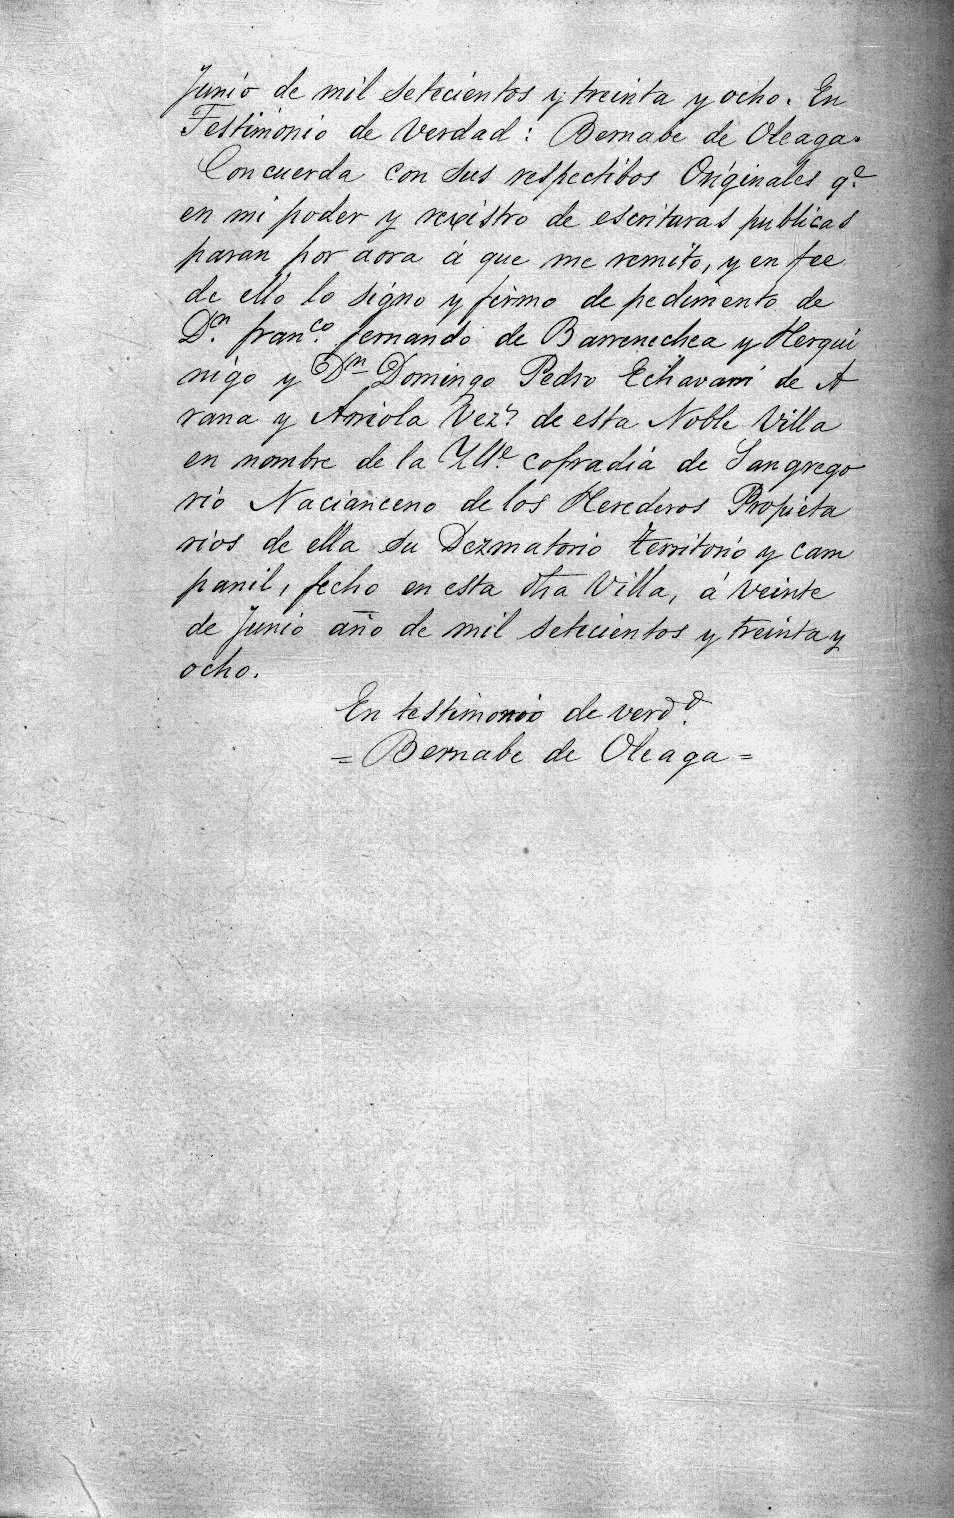 Junio de mil setecientos y treinta y ocho. En
Testimonio de Verdad: Bernabe de Oleaga.
Concuerda con sus respectibos Originales q.e
en mi poder y rexistro de escrituras publicas
paran por aora á que me remito, y en fee
de ello lo signo y firmo de pedimento de
D.n fran.co fernando de Barrenechea y Hergui
nigo y D.n Domingo Pedro Echavarri de A
rana y Arriola Vez.s de esta Noble Villa
en nombre de la Ylle. cofradia de Sangrego
rio Nacianceno de los Herederos Propieta
rios de ella su Dezmatorio territorio y cam
panil, fecho en esta dha Villa, á veinte
de Junio año de mil setecientos y treinta y
ocho.
En testimonio de verd.d
= Bernabe de Oleaga =